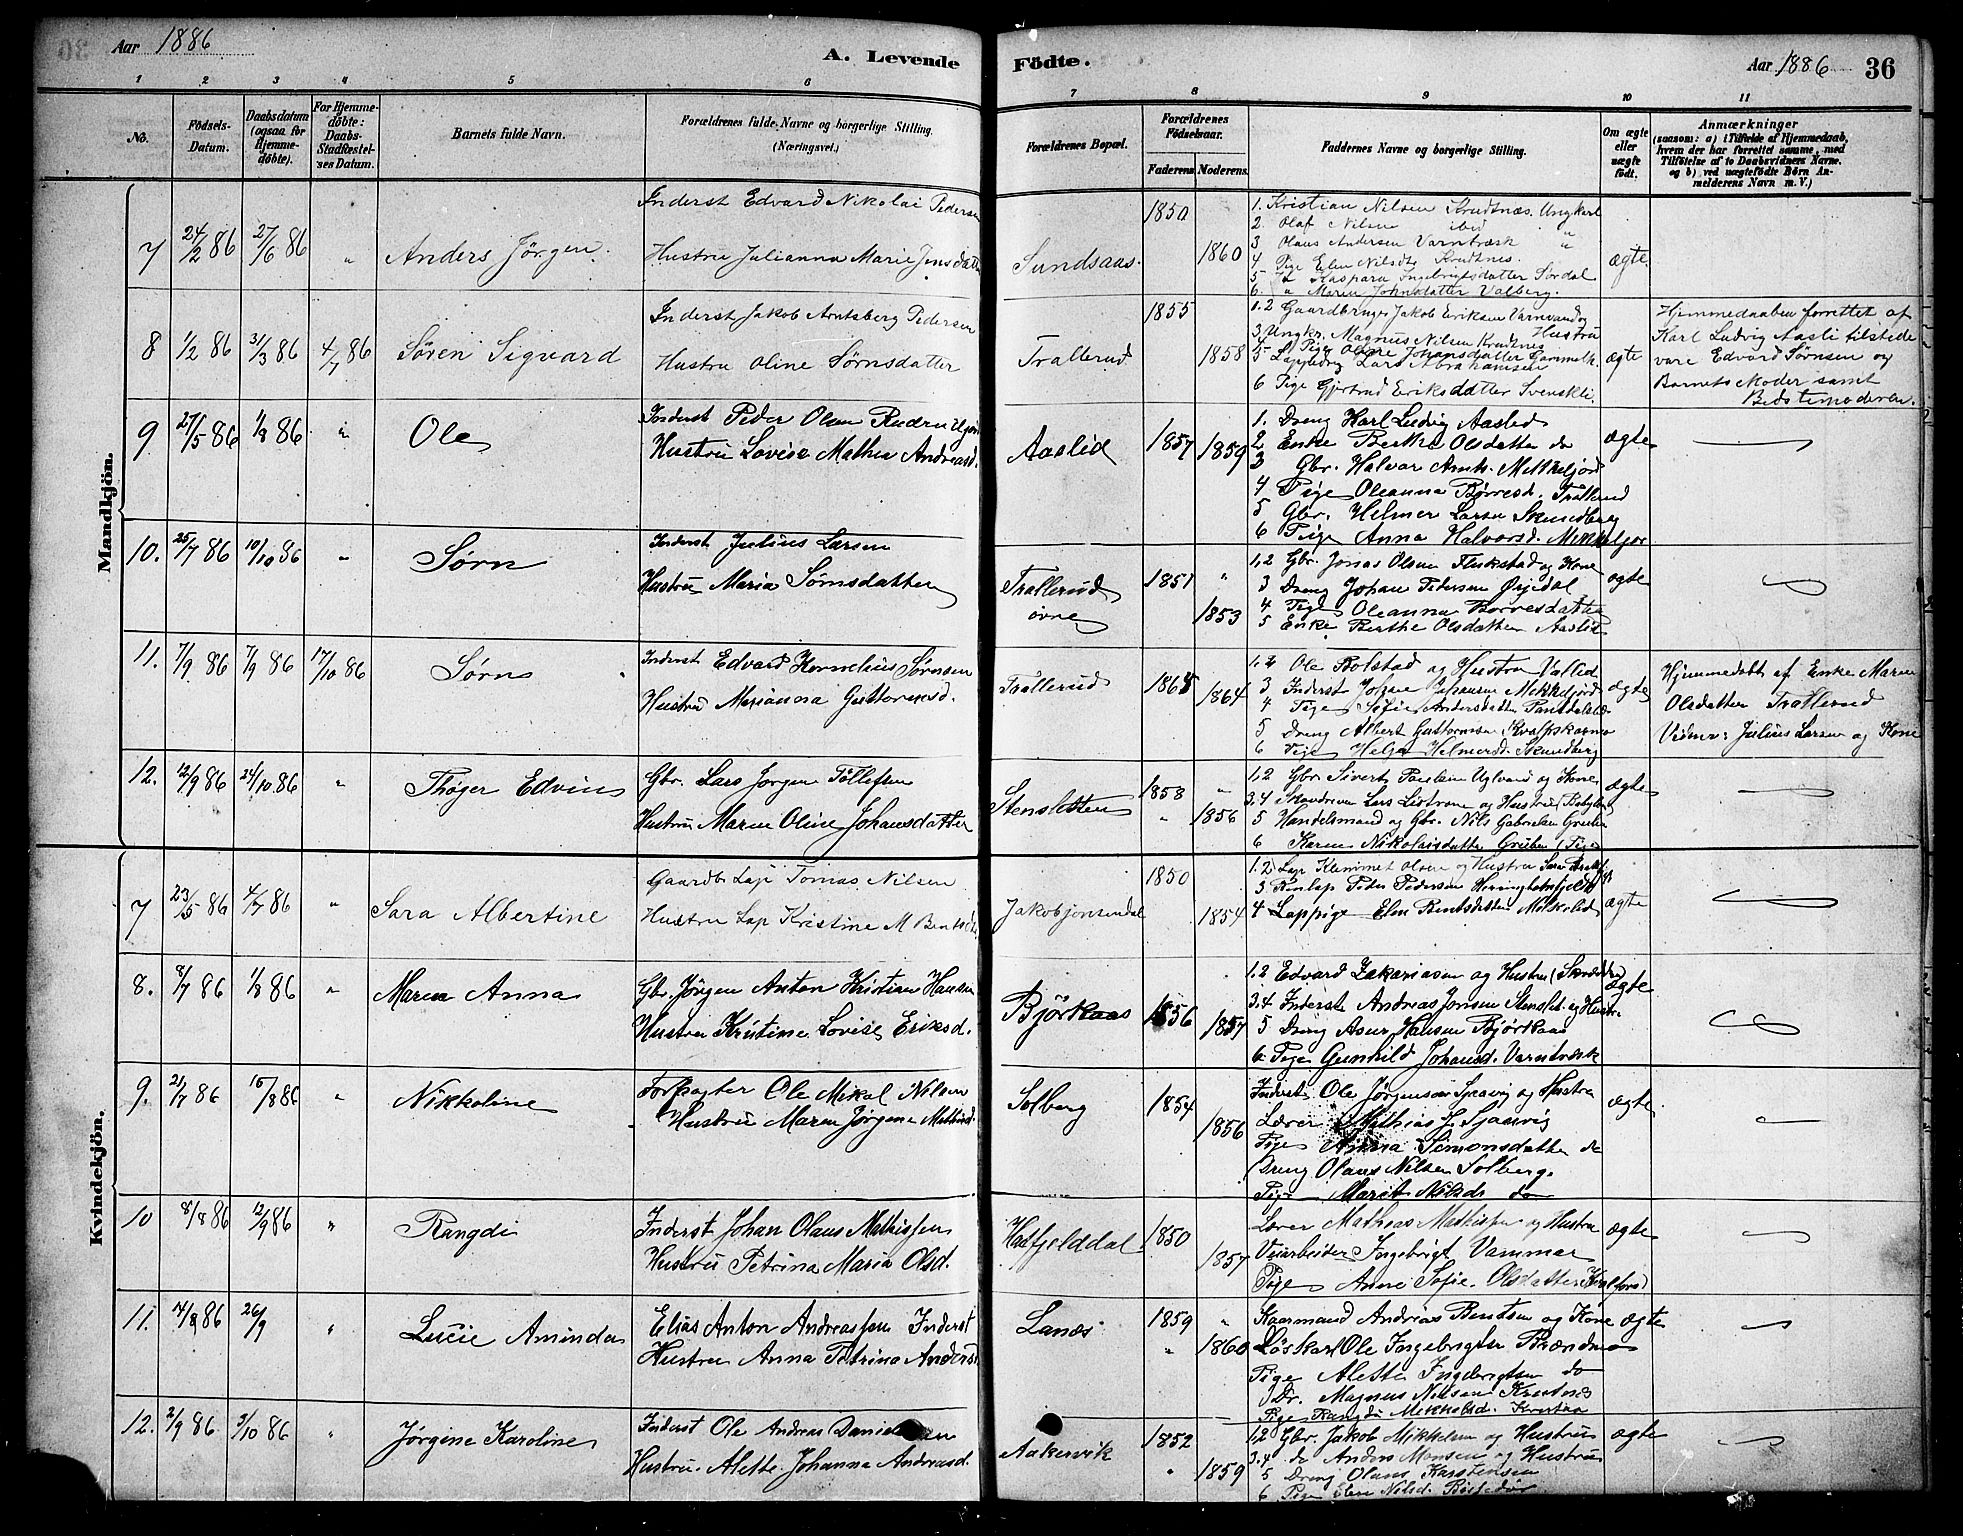 Aar 1886
A. Levende Födte.
Aar 1886 36
1 2 3 4 5 6 7 8 9 10 11
No.
Födsels-Datum.
Daabsdatum (ogsaa for Hjemmedöbte).
For Hjemmedöbte: Daabs-Stadfestelses Datum.
Barnets fulde Navn.
Forældrenes fulde Navne og borgerlige Stilling. (Næringsvei.)
Forældrenes Bopæl.
Forældrenes Födselsaar.
Faderens Moderens.
Faddernes Navne og borgerlige Stilling.
Om ægte eller uægte födt.
Anmærkninger
(saasom: a) i Tilfælde af Hjemmedaab, hvem der har forrettet samme, med Tilföielse af to Daabsvidners Navne. og b) ved uægtefödte Börn Anmelderens Navn m. V.)
Mandkjön.
7 24/2 86 27/6 86 " Anders Jørgen.
Inderst Edvard Nikolai Pedersen
Hustru Julianna Marie Jensdatter
Sundsaas. 1850 1860
1. Kristian Nilsen Krudtnæs. Ungkarl
2. Olaf Nilsen ibid "
3 Olaus Andersen Varntræsk "
4 Pige Elen Nilsdtr Krudtnes.
5 Kaspara Ingebrigtsdatter Sørdal
6. " Maren Johnsdatter Valberg.
ægte.
8 1/2 86 31/3 86 4/7 86 Søren Sigvard
Inderst Jakob Arntsberg Pedersen
Hustru Oline Sørnsdatter
Trallerud 1855 1858
1.2 Gaardbruger Jakob Eriksen Varnvand og Hustru
3. Ungkr. Magnus Nilsen Krudtnes
4 Pige Oline Johansdatter Gammelk.
5 Lars Abrahamsen
6 Pige Gjertrud Eriksdatter Svenskli.
ægte
Hjemmedaaben forrettet af
Karl Ludvig Aasli tilstede
vare Edvard Sørnsen og
Barnets Moder samt
Bedstemoderen.
9 27/5 86 1/8 86 " Ole
Inderst Peder Olsen
Hustru Lovise Mathea Andreasd.
Aaslid 1857 1859
1. Dreng Karl Ludvig Aaslid
2 Enke Berthe Olsdatter do
3 Gbr. Halvar Arnts. Mikkeljord
4 Pige Oleanna Børresd. Trallerud
5 Gbr. Helmer Larsen Skundberg
6 Pige Anna Halvorsd. Mikkeljor
ægte
10. 25/7 86 10/10 86 " Sørn
Inderst Julius Larsen
Hustru Maria Sørnsdatter
Trallerud øvre 1851 " 1853
1,2 Gbr. Jonas Olsen og Kone
3 Dreng Johan Pedersen
4 Pige Oleanna Børresdatter
5 Enke Berthe Olsdatter Aaslid
ægte
11. 7/9 86 7/9 86 17/10 86 Sørn
Inderst Edvard Kornelius Sørnsen
Hustru Marianna Guttormsd.
Trallerud 1865 1864
1.2 Ole Bolstad og Hustru Vallid
3 Inderst Johan Johansen Mikkeljord
4 Pige Sofie Andersdatter
5 Dreng Albert Guttormsen Kvalpskarmo
6 Pige Helga Helmersd. Skundberg
ægte
Hjemmedøbt af Enke Maren
Olsdatter Trallerud
Vidner: Julius Larsen og Kone
12. 12/9 86 24/10 86 " Thøger Edvin
Gbr. Lars Jørgen Tollefsen
Hustru Maren Oline Johansdatter
Stensletten 1858 " " 1856
1,2 Gbr. Sivert Paulsen Uglvand og Kone
3.4 Lars Listrøm og Hustru
5 Handelsmand og Gbr. Nils Gabrielsen Gruben
6 Karen Nikolaisdatter Gruben (Pige
ægte
Kvindekjön.
7 23/5 86 4/7 86 " Sara Albertine
Gaardb. Lap Tomas Nilsen
Hustru Lap Kristine M Bentsd
Jakobjonsendal 1850 1854
1.2) Lap Klemmet Olsen og Hustru Sara
3 Peder Pedersen
4 Lappige Elen Bentsdatter
ægte
8. 8/7 86 1/8 86 " Maren Anna
Gbr. Jørgen Anton Kristian Hansen
Hustru Kristine Lovise Eriksd.
Bjørkaas 1856 1857
1.2 Edvard Zakariasen og Hustru
3.4 Inderst Andreas Jonsen og Hustru
5 Dreng Hansen Bjørkaas
6 Pige Gunhild Johansd. Varntræsk
ægte
9. 21/7 86 15/8 86 " Nikkoline
Forpagter Ole Mikal Nilsen
Hustru Maren Jørgine
Solberg 1854 1856
Inderst Ole Jørgensen og Hustru
Lærer Mathias J. Sjaavig
Pige Anna Simonsdatter do
Dreng Olaus Nilsen Solberg.
Pige Marit Nilsd. do
ægte
10 8/8 86 12/9 86 " Rangdi
Inderst Johan Olaus Mathissen
Hustru Petrina Maria Olsd.
Hatfjelddal 1850 1857
Lærer Mathias Mathissen og Hustru
Veiarbeider Ingebrigt Vammar
Pige Anne Sofie Olsdatter
ægte
11. 14/8 86 26/9 " Lucie Aminda
Elias Anton Andreassen Inderst
Hustru Anna Petrina Anders
Lanæs 1859 " " 1860
Kaarmand Andreas Bentsen og Kone
Løskarl Ole Ingebrigtsen Brændmo
Pige Alette Ingebrigtsen do
Dr. Magnus Nilsen Krutnes
Pige Rangdi Mikkelsd. Krutaa
ægte
12. 2/9 86 3/10 86 " Jørgine Karoline
Inderst Ole Andreas Danielsen
Hustru Alette Johanna Andreasd.
Aakervik 1852 " 1859
1.2 Gbr. Jakob Mikkelsen og Hustru
3.4 do Anders Monsen og Hustru
5 Dreng Olaus Karstensen
6 Pige Elen Nilsd.
ægte